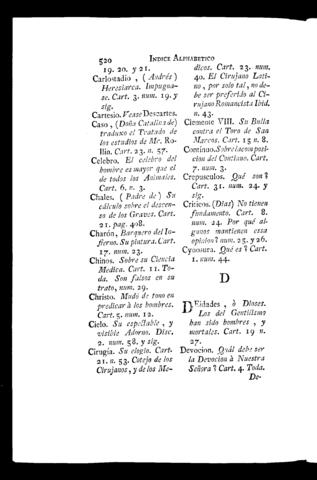 520 INDICE ALPHABETICO
19. 20. y 21.
Carlostadio, (Andrés)
Heresiarca. Impugna-
se. Cart. 3. num. 19. y
sig.
Cartesio. Vease Descartes.
Caso, (Doña Catalina de)
traduxo el Tratado de
los estudios de Mr. Ro-
llin. Cart. 23. n. 57.
Celebro. El celebro del
hombre es mayor que el
de todos los Animales.
Cart. 6. n. 3.
Chales. (Padre de) Su
cálculo sobre el descen-
so de los Graves. Cart.
21. pag. 408.
Charón, Barquero del In-
fierno. Su pintura. Cart.
17. num. 23.
Chinos. Sobre su Ciencia
Medica. Cart. 11. To-
da. Son falsos en su
trato, num. 29.
Christo. Mudó de tono en
predicar à los hombres.
Cart. 5. num. 12.
Cielo. Su espectable, y
visible Adorno. Disc.
2. num. 58. y sig.
Cirugía. Su elogio. Cart.
21. n. 53. Cotejo de los
Cirujanos, y de los Me-
dicos. Cart. 23. num.
40. El Cirujano Lati-
no, por solo tal, no de-
be ser preferido al Ci-
rujano Romancista Ibid.
n. 43.
Clemente VIII. Su Bulla
contra el Toro de San
Marcos. Cart. 15 n. 8.
Continuo. Sobre la composi-
cion del Continuo. Cart.
7. num. 3.
Crepusculos. Qué son?
Cart. 31. num. 24. y
sig.
Criticos. (Dias) No tienen
fundamento. Cart. 8.
num. 24. Por qué al-
gunos mantienen essa
opinion? num. 25. y 26.
Cynosura. Qué es? Cart.
1. num. 44.
D
DEidades, ò Dioses.
Los del Gentilismo
han sido hombres, y
mortales. Cart. 19 n.
27.
Devocion. Quál debe ser
la Devocion à Nuestra
Señora? Cart. 4. Toda.
De-